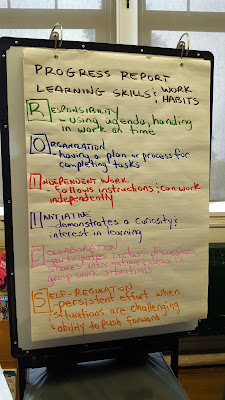 PROGRESS REPORT
LEARNING SKILLS & WORK
HABITS
RESPONSIBILITY
- using agenda, handing
in work on time
ORGANIZATION
- having a plan or process for
completing tasks
INDEPENDENT WORK
- follows instructions & can work
independently
INITIATIVE
- demonstrates a curiosity &
interest in learning
COLLABORATION
- participates in class discussion
shares information & ideas in
group work situations
SELF-REGULATION
- persistent effort when
situations are challenging
- ability to push forward